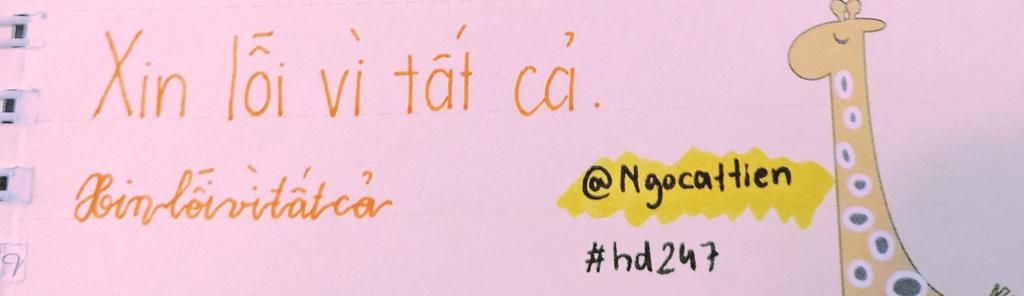 Xin lỗi vì tất cả.
Xin lỗi vì tất cả
@Ngocattien
#hd247